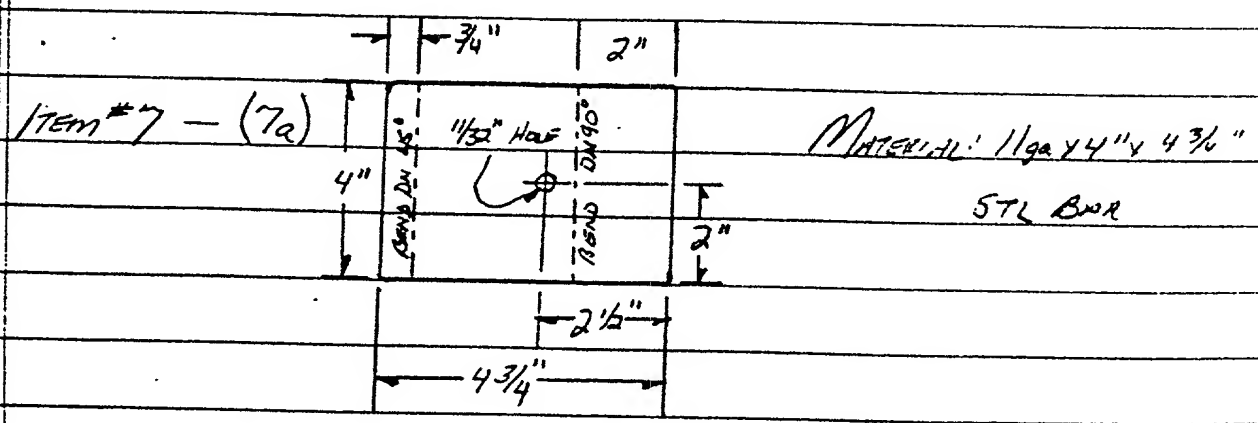 3/4"
2"
ITEM #7 — (7a)
4"
BEND DN 45°
11/32" HOLE
BEND DN 90°
2"
MATERIAL: 11ga x 4" x 4 3/4"
STL BAR
2 1/2"
4 3/4"